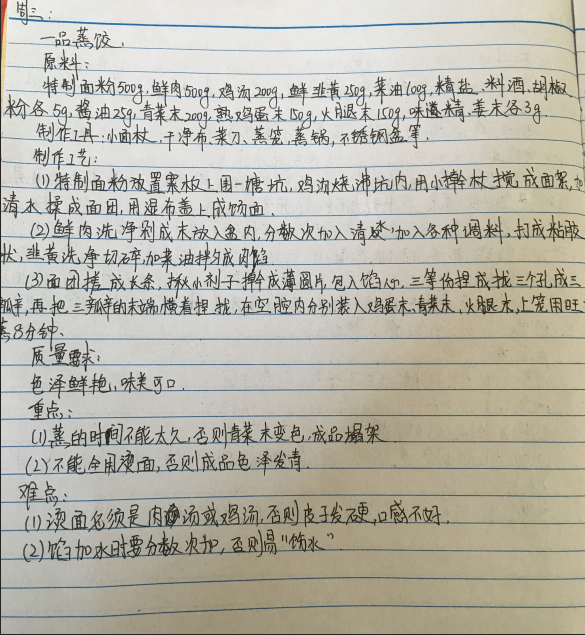 周三:
一品蒸饺.
原料:
特制面粉500g,鲜肉500g,鸡汤200g,鲜韭黄250g,菜油100g,精盐、料酒、胡椒
粉各5g,酱油25g,青菜末200g,熟鸡蛋末150g,火腿末150g,味精、姜末各3g.
制作工具:小面杖、干净布、菜刀、蒸笼、蒸锅、不锈钢盆等.
制作工艺:
(1)特制面粉放置案板上围一塘坑,鸡汤烧沸坑内,用小擀杖搅成面絮,加
清水揉成面团,用湿布盖上成饧面.
(2)鲜肉洗净剁成末放入盆内,分数次加入清水,加入各种调料,打成粘胶
状,韭黄洗净切碎,加菜油拌匀成肉馅
(3)面团搓成长条,揪小剂子擀成薄圆片,包入馅心,三等份捏成拢三个孔成三
瓣,再把三瓣的末端横着捏拢,在空腔内分别装入鸡蛋末、青菜末、火腿末,上笼用旺
蒸8分钟.
质量要求:
色泽鲜艳,味美可口.
重点:
(1)蒸的时间不能太久,否则青菜末变色,成品塌架.
(2)不能全用烫面,否则成品色泽发青.
难点:
(1)烫面必须是肉汤或鸡汤,否则皮子发硬,口感不好.
(2)馅加水时要分数次加,否则易“伤水”.